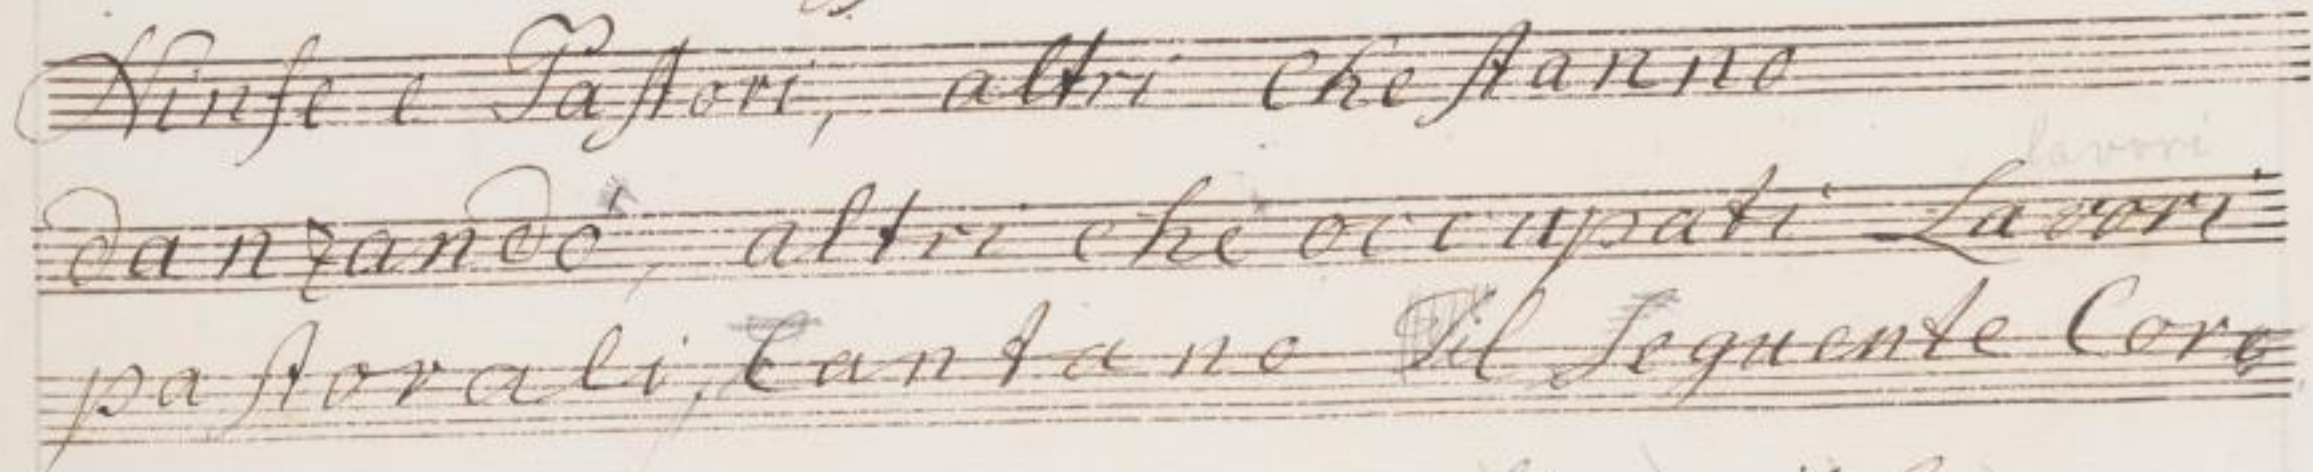 Ninfe e Pastori, altri che stanno
lavori
danzando, altri che occupati Lavori
pastorali, Cantano Il Seguente Coro